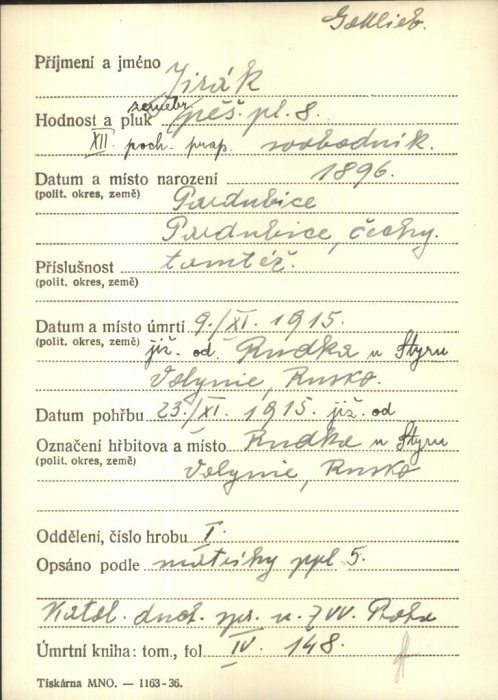 Gottlieb.
Příjmení a jméno Jirák
Hodnost a pluk zeměbr. pěš. pl. 8.
XII. poch. prap. svobodník.
Datum a místo narození 1896.
(polit. okres, země) Pardubice
Pardubice, Čechy.
Příslušnost tamtéž.
(polit. okres, země)
Datum a místo úmrtí 9./XI. 1915.
(polit. okres, země) již. od. Rudka u Styru
Volynie, Rusko.
Datum pohřbu 23./XI. 1915. již. od
Označení hřbitova a místo Rudka u Styru
(polit. okres, země) Volynie, Rusko
Oddělení, číslo hrobu I.
Opsáno podle matriky ppl 5.
Katol. duch. spr. u ZVV. Praha
Úmrtní kniha: tom., fol IV. 148.
Tiskárna MNO. — 1163-36.